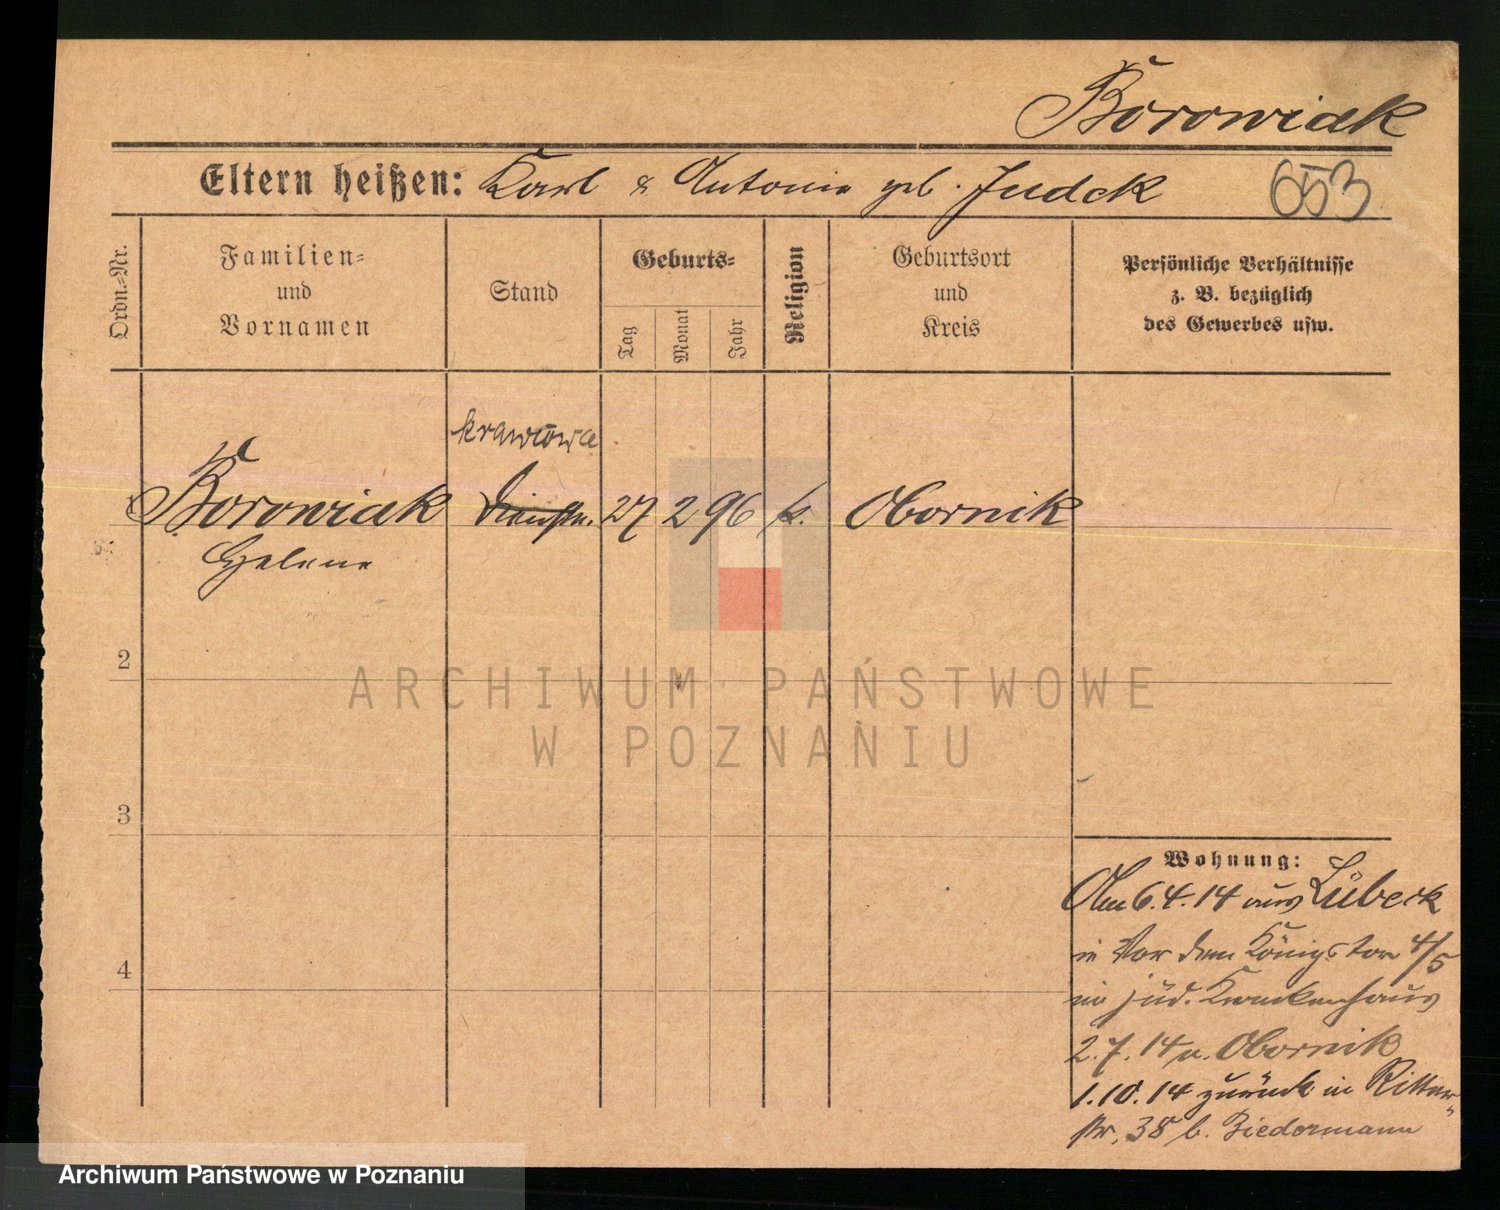 Borowiak
Eltern heißen: Karl & Antonie geb. Judek
653
Ordn.=Nr.
Familien=
und
Vornamen
Stand
Geburts=
Tag
Monat
Jahr
Religion
Geburtsort
und
Kreis
Persönliche Verhältnisse
z. B. bezüglich
des Gewerbes usw.
krawcowa
Borowiak Dienstm. 27 2 96 k. Obornik
Helene
2
3
4
Wohnung:
Am 6.4.14 aus Lübeck
in Vor dem Königstor 4/5
im jüd. Krankenhaus
2.7.14 n. Obornik
1.10.14 zurück in Ritter-
str. 38 b. Biedermann
ARCHIWUM PAŃSTWOWE
W POZNANIU
Archiwum Państwowe w Poznaniu